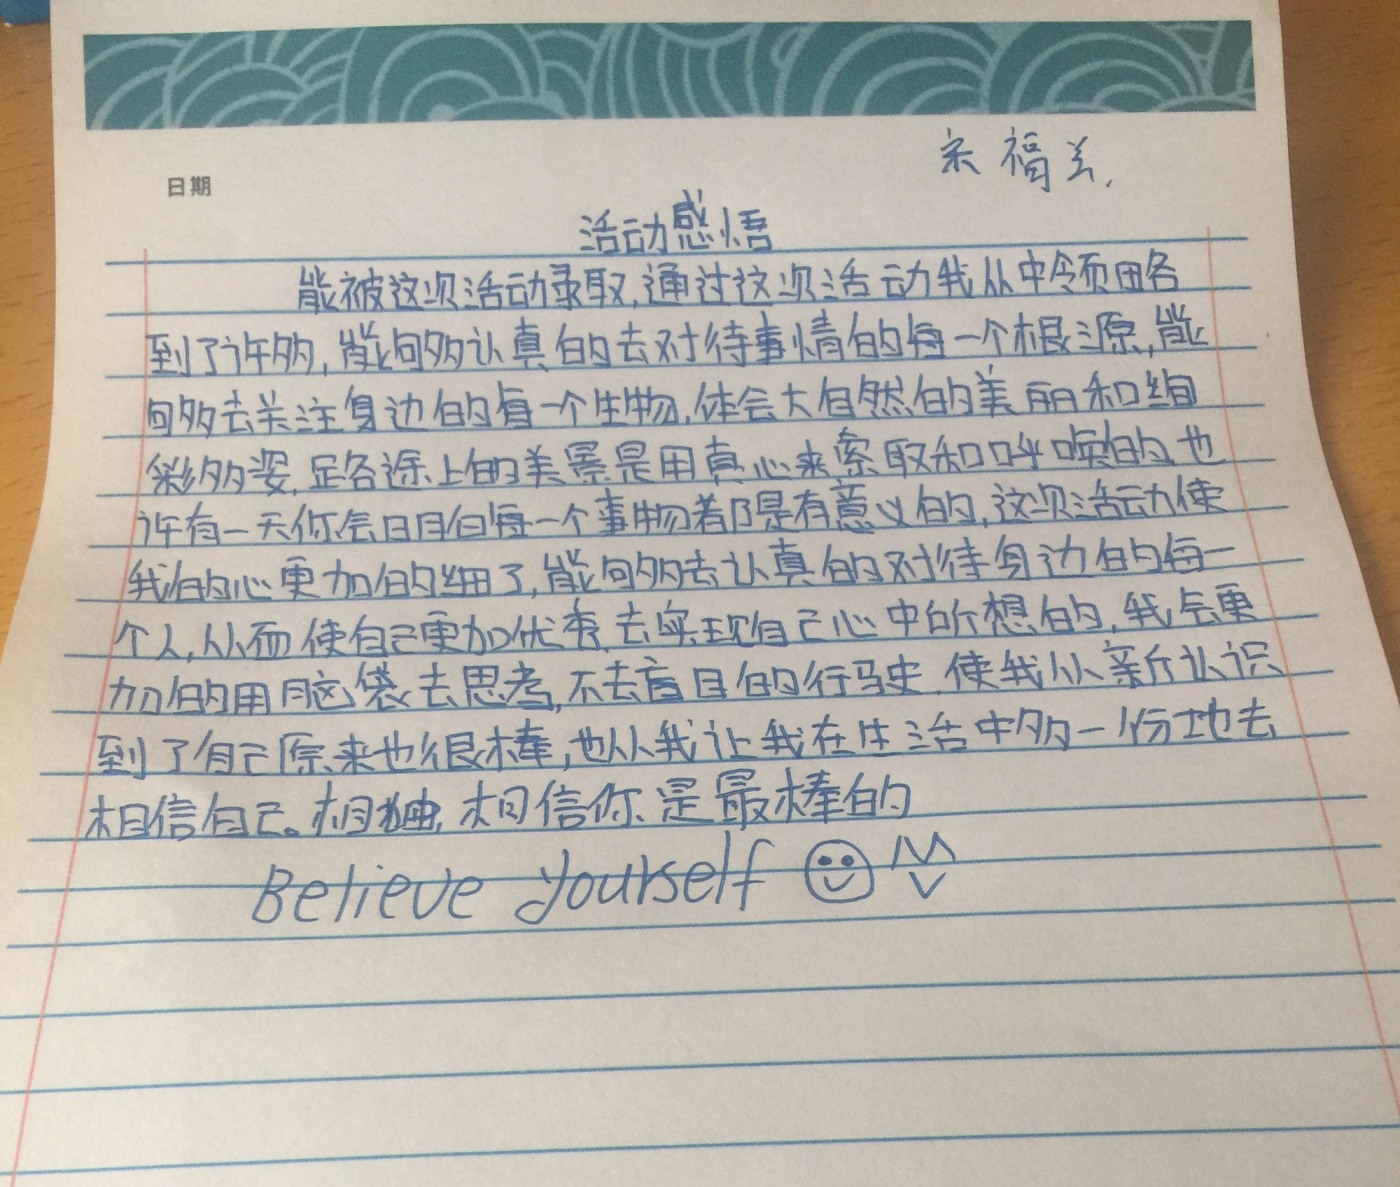 宋福兰
日期
活动感悟
能被这次活动录取,通过这次活动我从中领略
到了许多,能够认真的去对待事情的每一个根源,能
够去关注身边的每一个生物,体会大自然的美丽和绚
彩多姿,足各途上的美景是用真心来索取和呼唤的,也
许有一天你会明白每一个事物都是有意义的,这次活动使
我的心更加的细了,能够去认真的对待身边的每一
个人,从而使自己更加优秀,去实现自己心中所想的,我会更
加的用脑袋去思考,不去盲目的行驶,使我从新认识
到了自己原来也很棒,也从我让我在生活中多一份地去
相信自己。相独,相信你是最棒的
Believe yourself